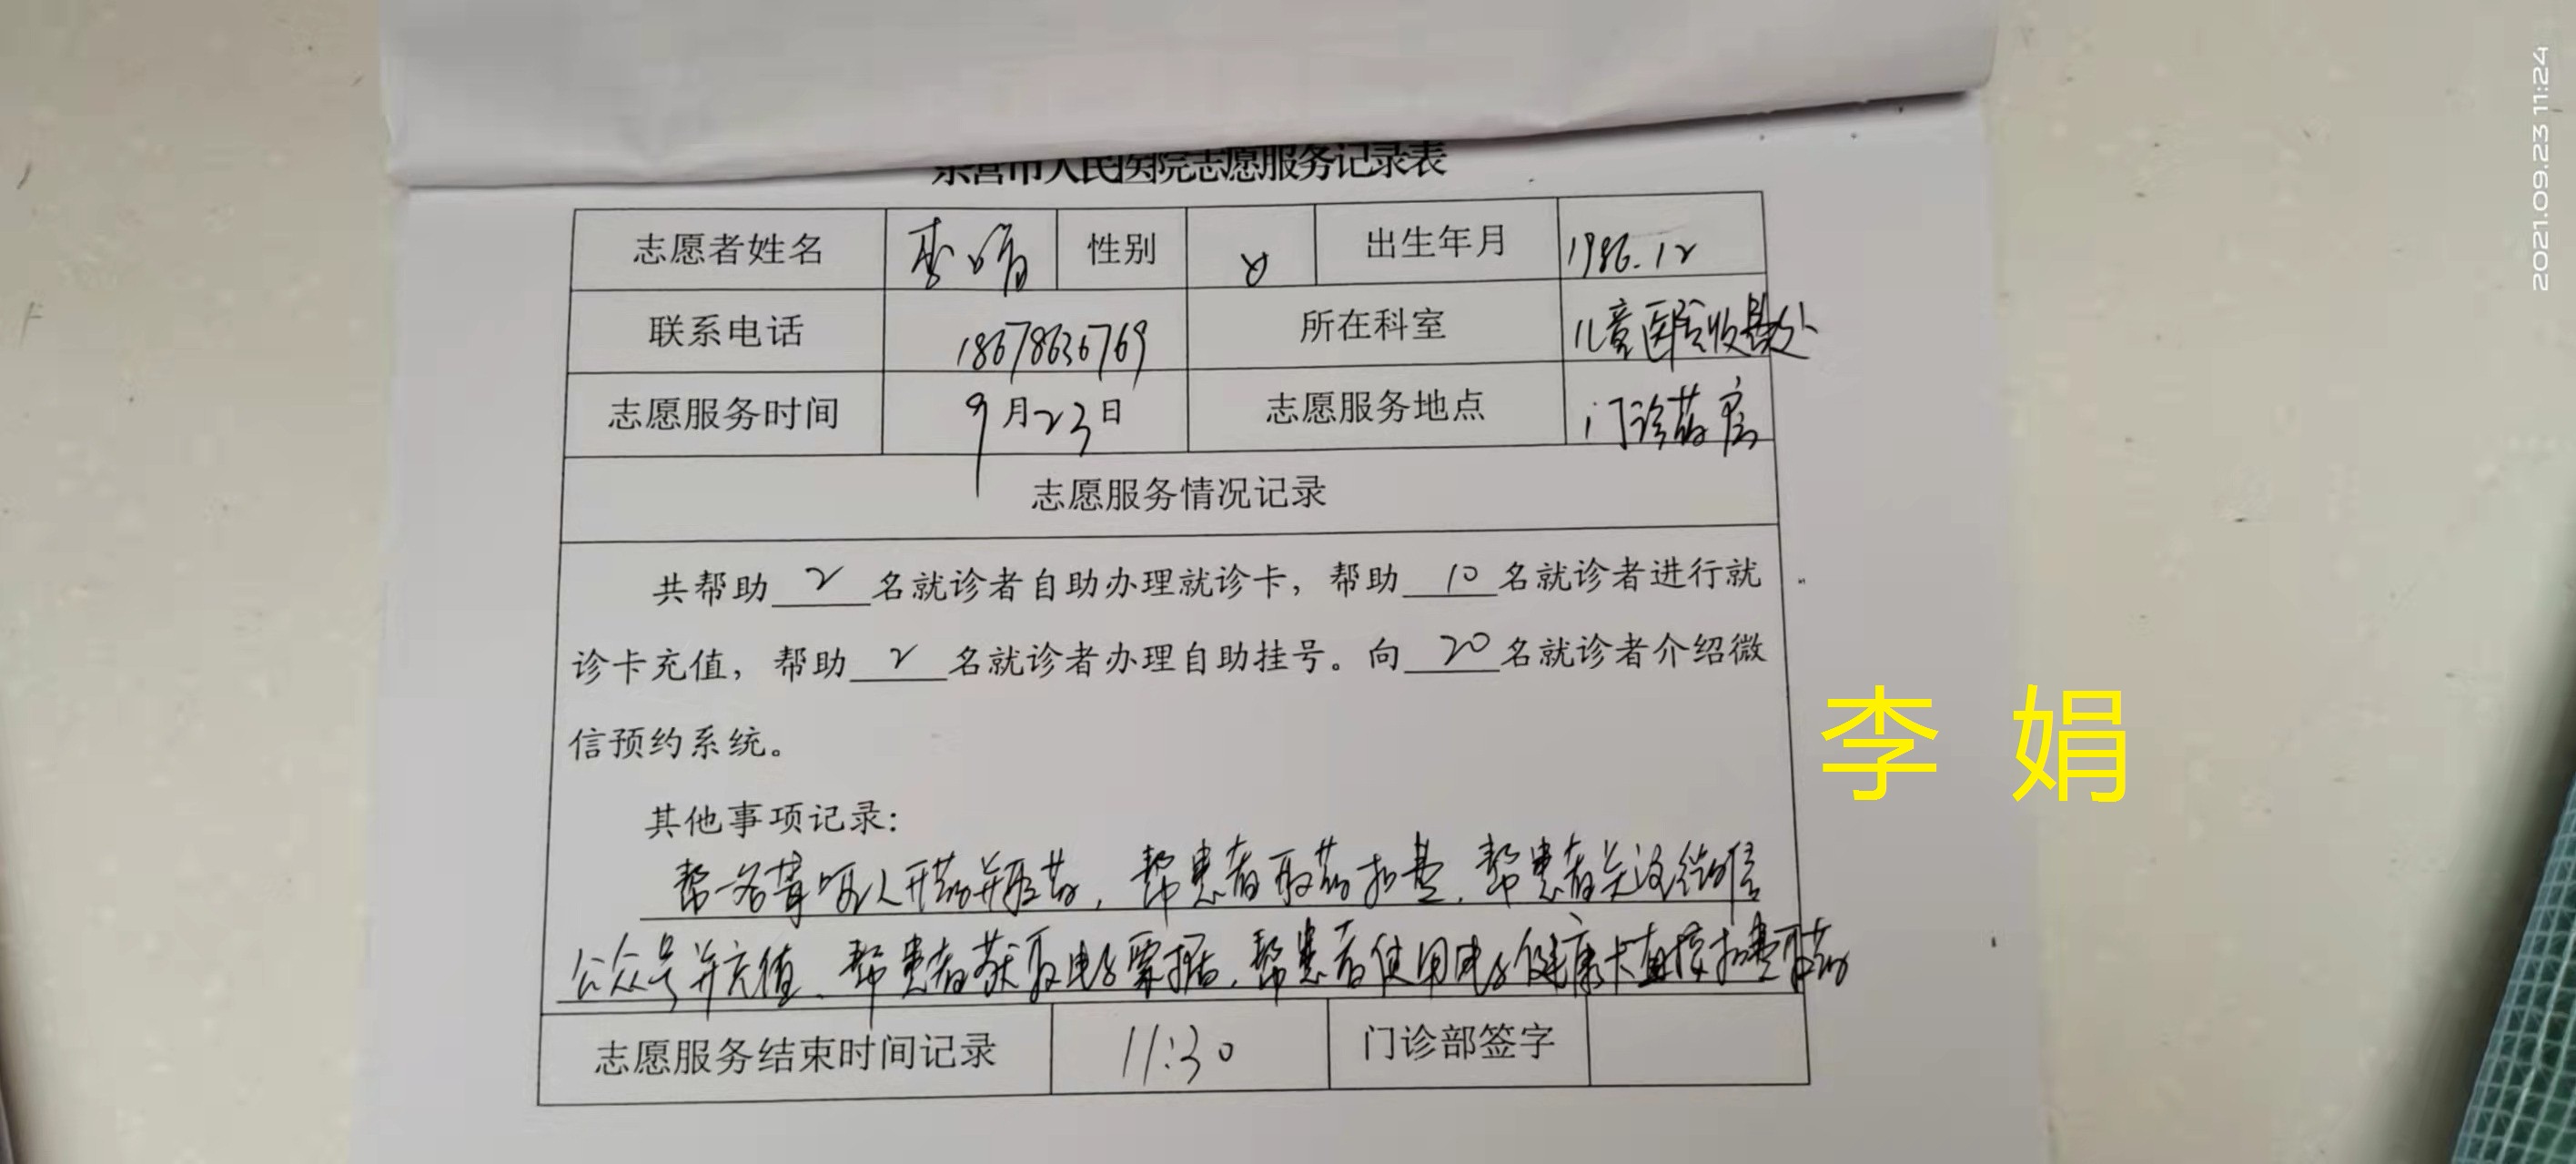 东营市人民医院志愿服务记录表
志愿者姓名 李娟 性别 女 出生年月 1986.12
联系电话 18678636769 所在科室 儿童医院收费处
志愿服务时间 9月23日 志愿服务地点 门诊药房
志愿服务情况记录
共帮助 2 名就诊者自助办理就诊卡，帮助 10 名就诊者进行就
诊卡充值，帮助 2 名就诊者办理自助挂号。向 20 名就诊者介绍微
信预约系统。
李 娟
其他事项记录：
帮一名聋哑人开药并取药，帮患者取药扣费，帮患者关注微信
公众号并充值、帮患者获取电子票据，帮患者使用电子健康卡直接扣费取药
志愿服务结束时间记录 11:30 门诊部签字
2021.09.23 11:24